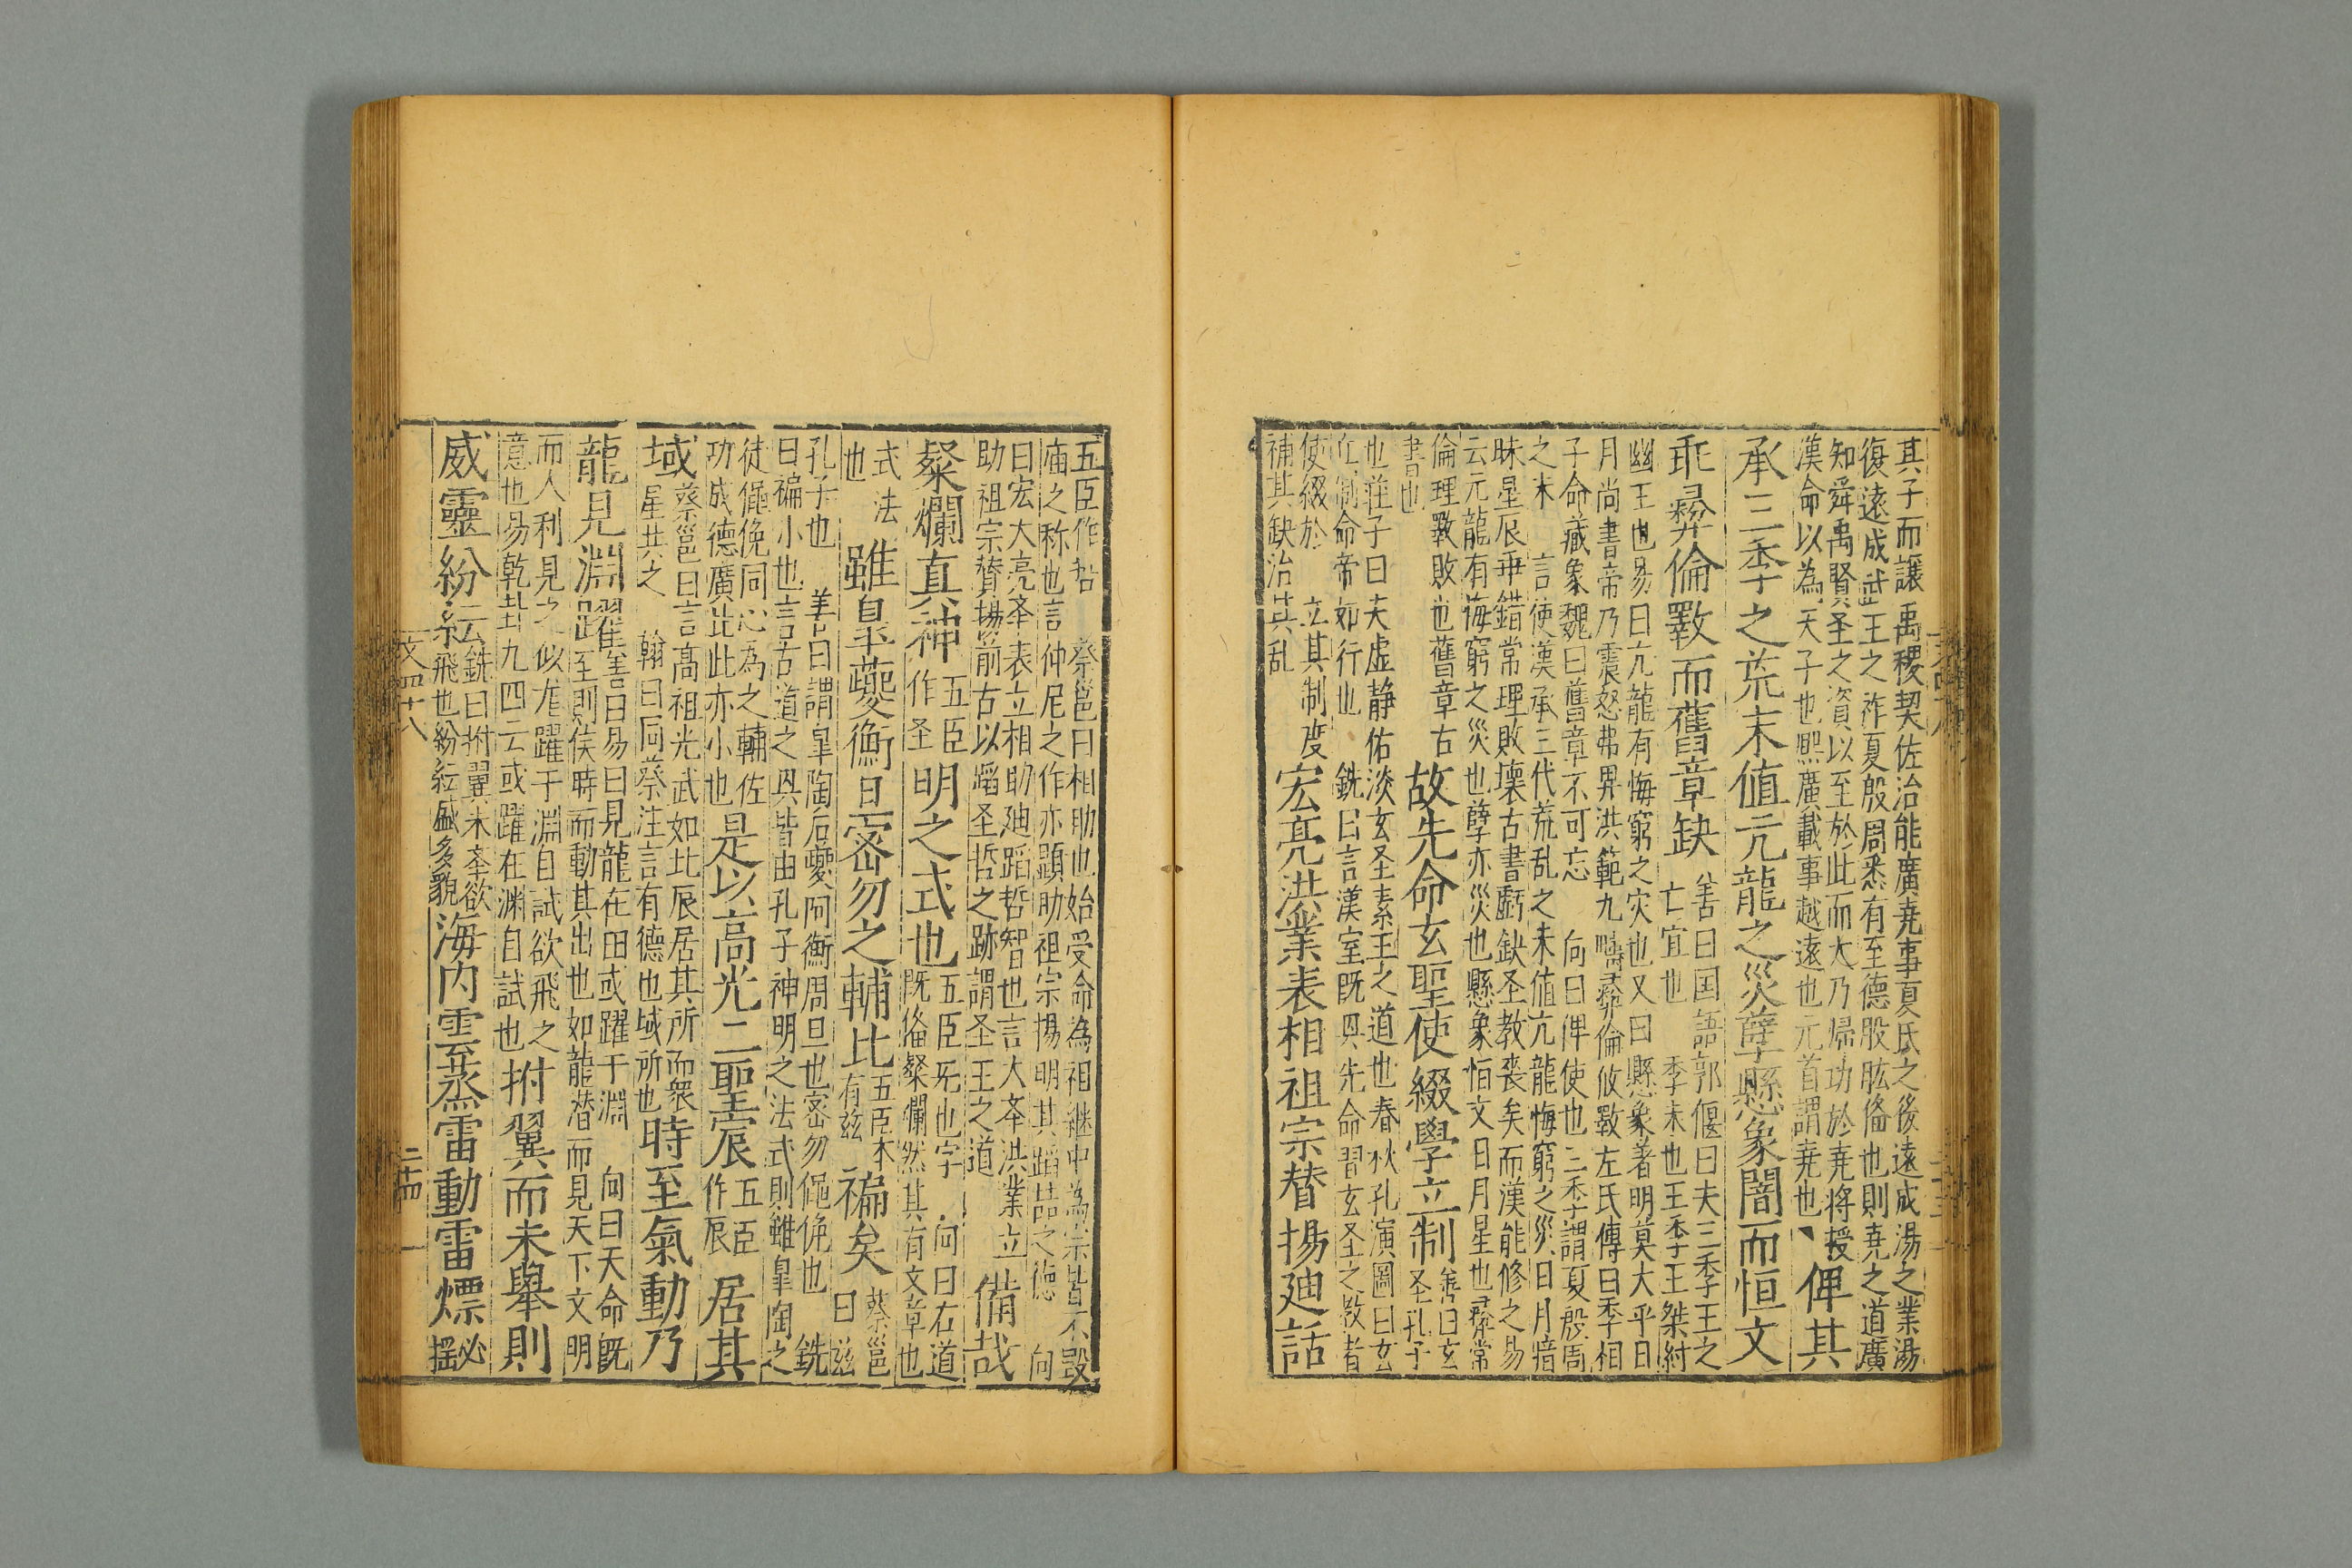 其子而讓禹稷契佐治能廣堯事夏氏之後遠成湯之業湯
復遠成武王之祚夏殷周悉有至德股肱俻也則堯之道廣
知舜禹賢圣之資以至於此而大乃歸功於堯将授
漢命以為天子也熙廣載事越遠也元首謂堯也
俾其
承三季之荒末值亢龍之災孽懸象闇而恒文
乖彛倫斁而舊章缺
善曰国語郭偃曰夫三季王之
亡宜也 季末也王季王桀紂
幽王也易曰亢龍有悔窮之灾也又曰懸象著明莫大乎日
月尚書帝乃震怒弗畀洪範九疇彛倫攸斁左氏傳曰季桓
子命藏象魏曰舊章不可忘 向曰俾使也三季謂夏殷周
之末 言使漢承三代荒乱之末值亢龍悔窮之災日月暗
昧星辰乖錯常理敗壊古書虧缺圣教丧矣而漢能修之易
云亢龍有悔窮之災也孽亦災也懸象恒文日月星也彛常
倫理斁敗也舊章古
書也
故先命玄聖使綴學立制
善曰玄
圣孔子
也荘子曰夫虚静恬淡玄圣素王之道也春秋孔演圖曰玄
丘制命帝卯行也 銑曰言漢室既興先命習玄圣之教者
使綴於 立其制度
補其缺治其乱
宏亮洪業表相祖宗賛揚廸話
五臣作哲 蔡邕曰相助也始受命為祖継中為宗皆不毀
庙之称也言仲尼之作亦顕助祖宗揚明其蹈喆之德 向
曰宏大亮夲表立相助廸蹈哲智也言大夲洪業立
助祖宗賛揚前古以蹈圣哲之跡謂圣王之道
備哉
粲爛真神
五臣
作圣
明之式也
五臣旡也字 向曰右道
既俻粲爛然其有文章也
式 法
也
雖皐夔衡旦宻勿之輔比
五臣本
有兹
褊矣
蔡邕
曰兹
孔子也 善曰謂皐陶后夔阿衡周旦也宻勿僶俛也 銑
曰褊小也言古道之興皆由孔子神明之法式則雖皐陶之
徒僶俛同心為之輔佐
功成德廣比此亦小也
是以高光二聖宸
五臣
作辰
居其
域
蔡邕曰言髙祖光武如北辰居其所而衆
星共之 翰曰同蔡注言有德也域所也
時至氣動乃
龍見淵躍
善曰易曰見龍在田或躍于淵 向曰天命既
至則俟時而動其出也如龍潜而見天下文明
而人利見之似龙躍于淵自試欲飛之
意也易乾卦九四云或躍在渊自試也
拊翼而未舉則
威靈紛紜
銑曰拊翼未夲欲
飛也紛紜盛多貌
海内雲蒸雷動雷熛
必
揺
文四十八
二十四